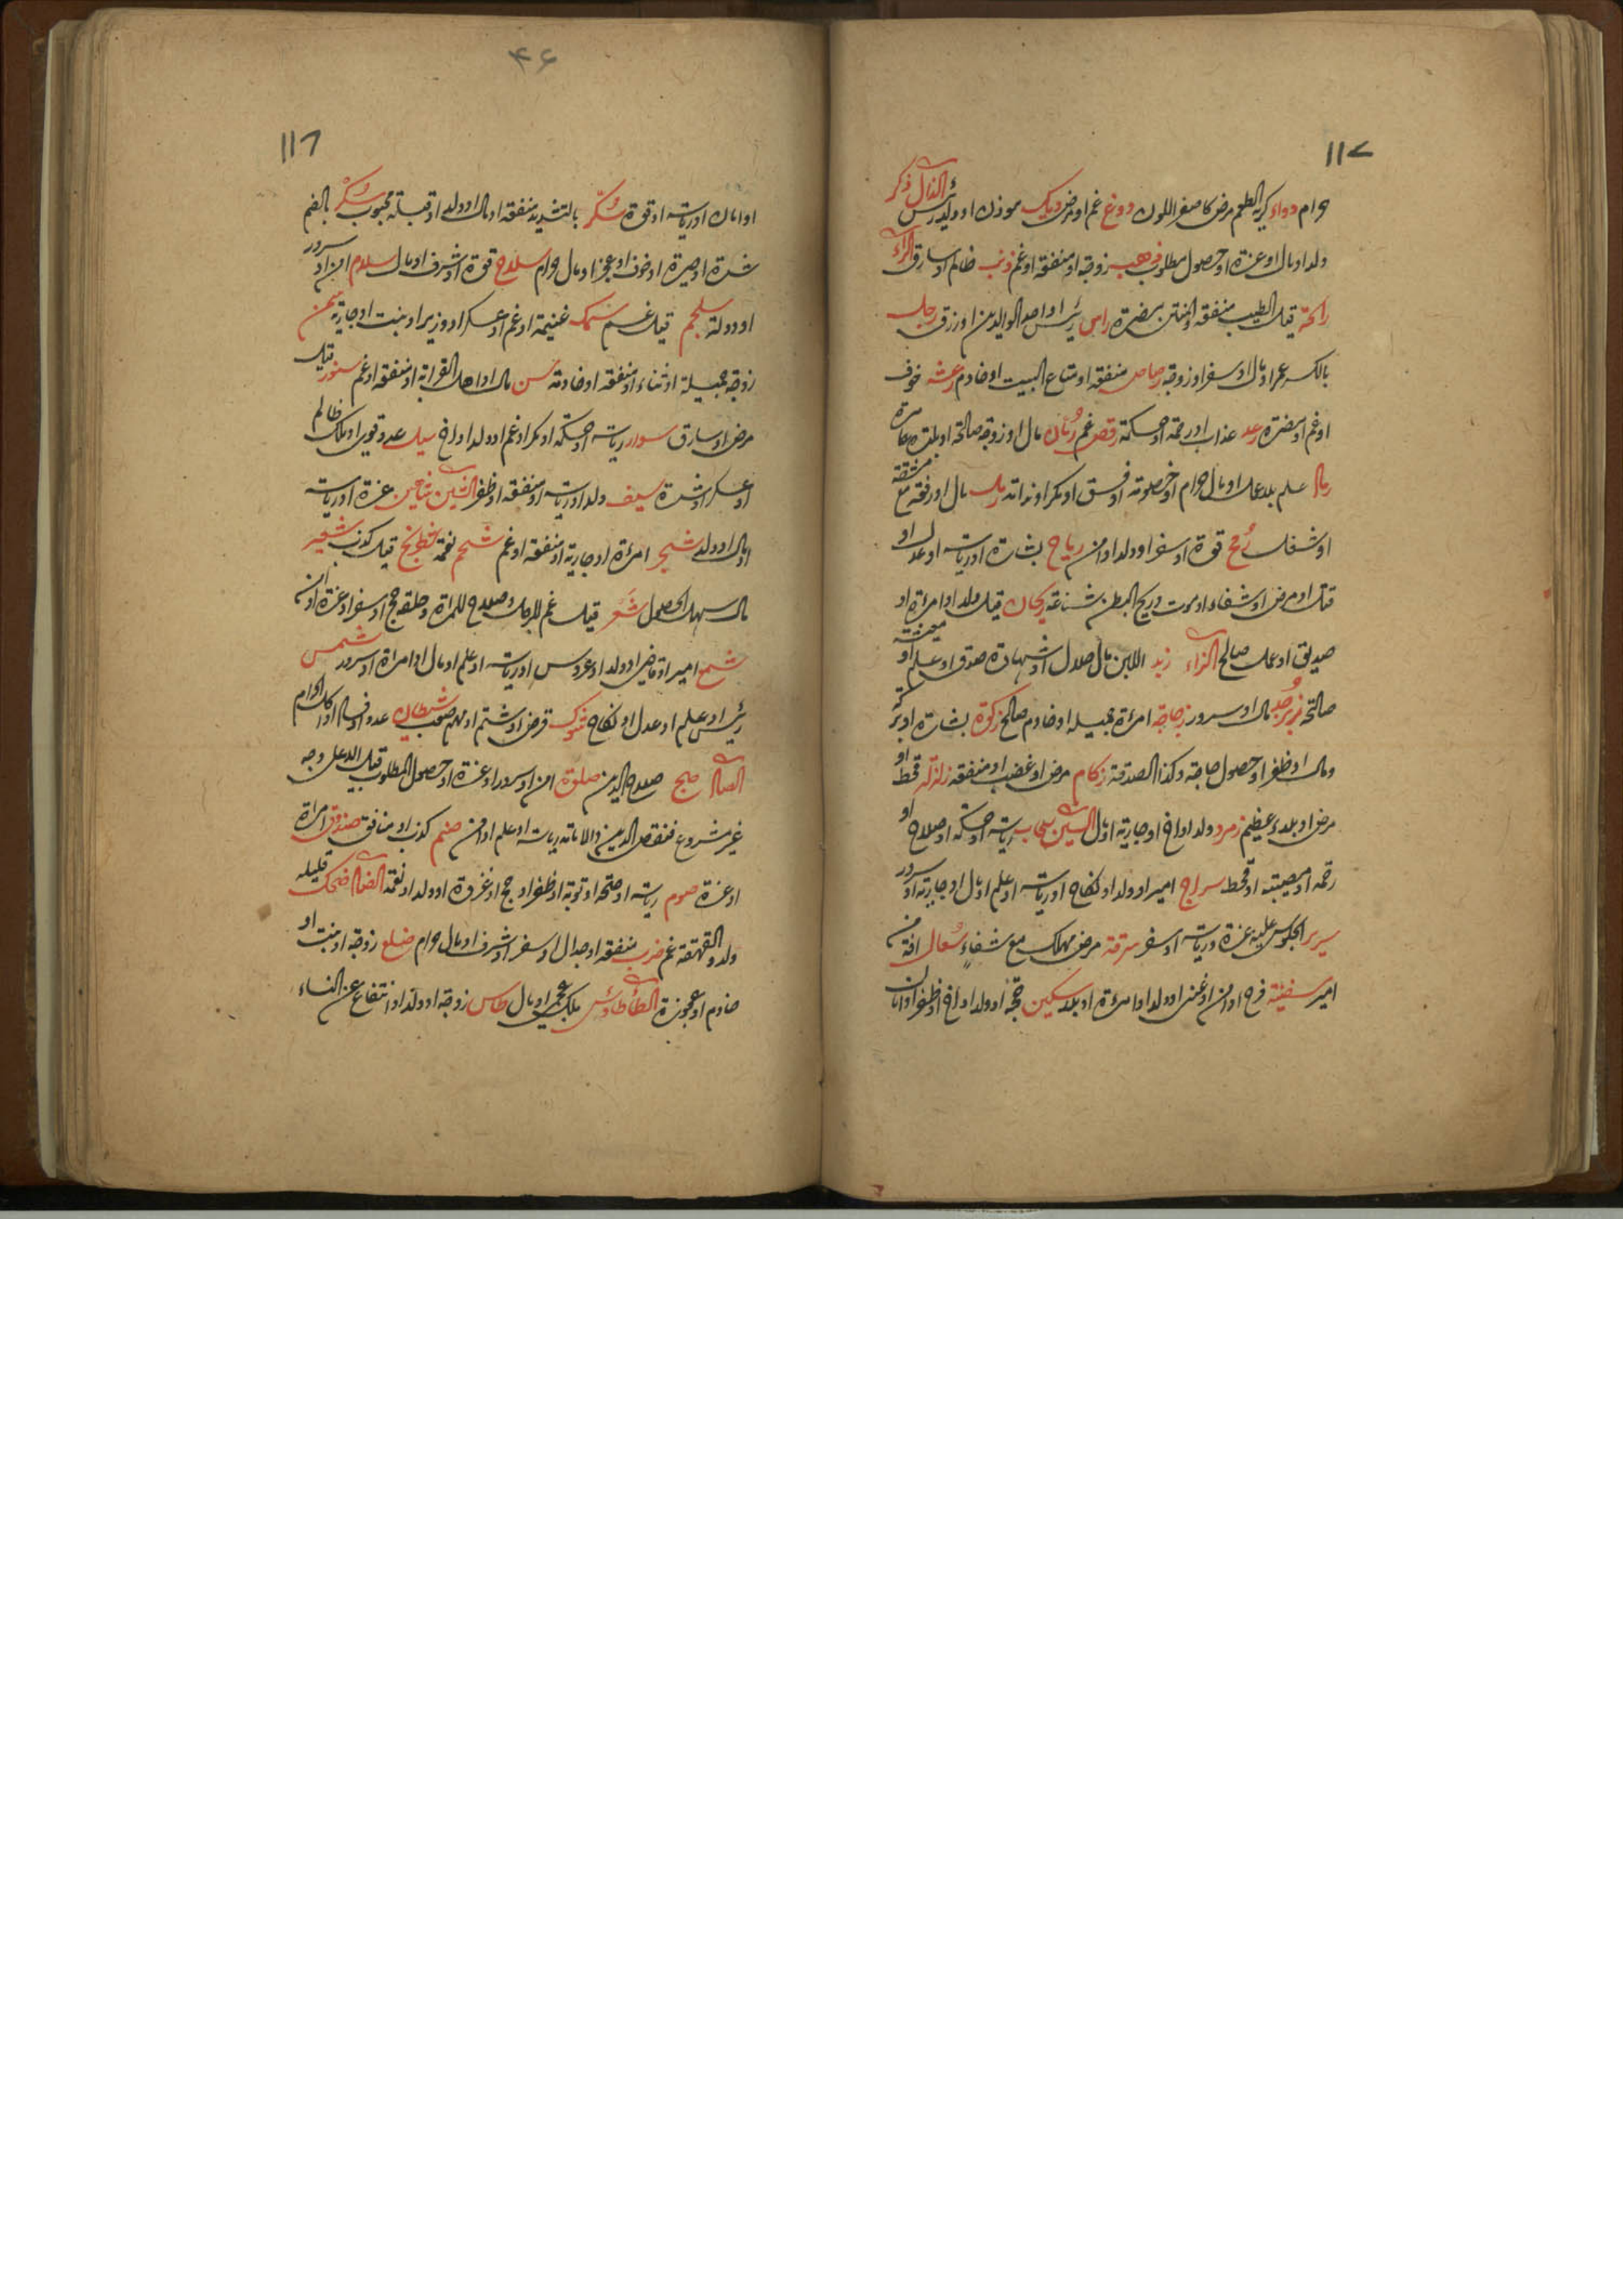 ۱۱۷
حرام دواء كريه الطعم مرض كاصفر اللون دوغ غم او مرض ديك موذن او ولد رئيس الذال ذكر
ولد او مال او عزة او حصول مطلوب ذهب زوجة او منفقه او غم ذئب ظالم او سارق الراء
رائحة قيل الطيب منفقه والنتن مضرة راس رئيس او احد الوالدين او رزق رجل
بالكسر عمر او مال او سفر او زوجة رصاص منفقه او متاع البيت او خادم رعشه خوف
او غم او مضرة رعد عذاب او رحمة او حكمة رقص غم رمان مال او زوجة صالحة او بلدة عامرة
رمال علم بلا عمل او مال حرام او خصومة او فسق او مكر او ندامة رمل مال او رفعة مع مشقة
او شغل رمح قوة او سفر او ولد او امن رياح بشارة او رياسة او عدل او
قتل او مرض او شفاء او موت وريح البطن شناعة ريحان قيل ولد او امرءة او
صديق او عمل صالح الزاء زبد اللبن مال حلال او شهادة صدق او علم او معيشة
صالحة زبرجد مال او سرور زجاجة امرءة جميلة او خادم صالح زكوة بشارة او بركة
ومال او ظفر او حصول حاجة وكذا الصدقة زكام مرض او غضب او منفقه زلزله قحط او
مرض او بلاء عظيم زمرد ولد او اخ او جارية او مال السين سحاب رياسة او حكمة او صلاح او
رحمة او مصيبة او قحط سراج امير او ولد او نكاح او رياسة او علم او مال او جارية او سرور
سرير الجلوس عليه عزة ورياسة او سفر سرقة مرض مهلك مع شفاء سعال افة من
امير سفينة فرح او امن او غنى او ولد او امرءة او بلد سكين حجة او ولد او اخ او ظفر او امان
۴۶
۱۱۶
او امان او رياسة او قوة سكر بالتشديد منفقه او مال او ولد او قبلة محبوب سكر بالضم
شدة او حيرة او خوف او عجز او مال حرام سلاح قوة او شرف او مال سلام امن او سرور
او دولة سلجم قيل غم سمك غنيمة او غم او عسكر او وزير او بنت او جارية سمن
زوجة جميلة او ثناء او منفقه او خادمة سن مال او اهل القرابة او منفقه او غم سنور قيل
مرض او سارق سوار رياسة او حكمة او مكر او غم او ولد او اخ سيل عدو قوي او ملك ظالم
او عسكر او شدة سيف ولد او رياسة او منفقه او ظفر الشين شاهين عزة او رياسة
او مال او ولد شجر امرءة او جارية او منفقه او غم شحم نعمة شطرنج قيل كذب شعير
مال سهل الحصول شعر قيل غم للرجال وصلاح للمراة وحلقه حج او سفر او عزة او امن
شمع امير او قاضي او ولد او عروس او رياسة او علم او مال او امراة او سرور شمس
رئيس او علم او عدل او نكاح شوك قرض او شتم او مهم صعب شيطان عدو او فساد او اكل الحرام
الصاد صبح صلاح الدين صلوة امن او سرور او عزة او حصول المطلوب قيل الا على وجه
غير مشروع فنقص الدين والامانة رياسة او علم او امن صنم كذب او منافق صندوق امراة
او عزة صوم رياسة او صحة او توبة او ظفر او حج او غزوة او ولد او نعمة الضاد ضحك قليله
ولد والقهقهة غم ضرب منفقه او جدال او سفر او شرف او مال حرام ضلع زوجة او بنت او
خادم او عجوزة الطاء طاؤس ملك عجمي او مال طاس زوجة او ولد او انتفاع عن النساء